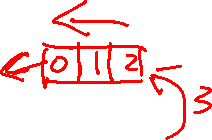 0 1 2
3